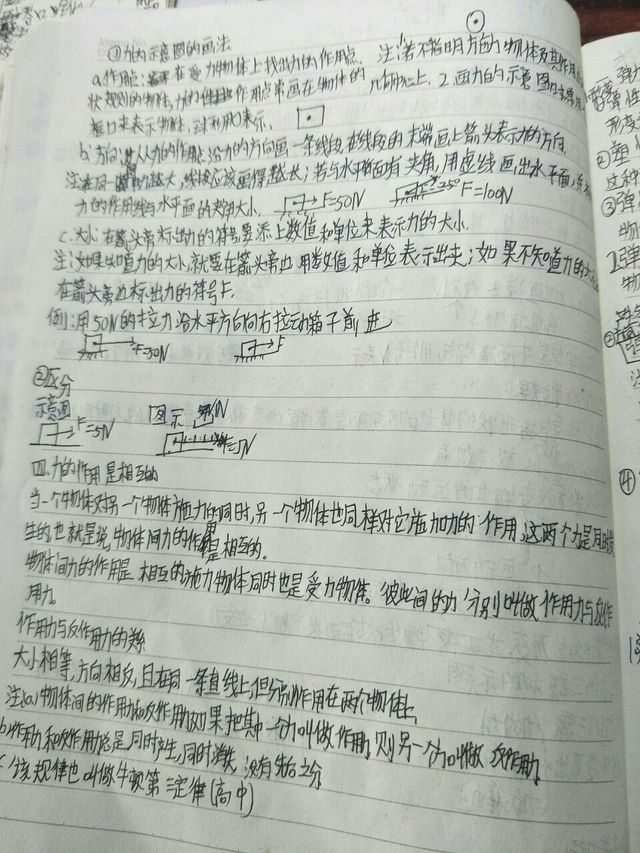 ①力的示意图的画法
a.作用点:在受力物体上找出力的作用点. 注:若不指明方向的物体及其作用点
状规则的物体,力的作用点常画在物体的几何中心上. 2.画力的示意图
框口来表示物体,
b.方向:从力的作用点沿力的方向画一条线段,在线段的末端画上箭头表示力的方向.
注:在同一图中力越大,线段应该画得越长;若与水平面有夹角,用虚线画出水平面,
力的作用线与水平面的夹角大小. F=50N F=100N
c.大小:在箭头旁标出力的符号要添上数值和单位来表示力的大小.
注:如果知道力的大小,就要在箭头旁边用数值和单位表示出来;如果不知道力的大小
在箭头旁边标出力的符号F.
例:用50N的拉力沿水平方向向右拉动箱子前进
F=50N F
②区分
示意图 图示
F=5N F=5N
四.力的作用是相互的
当一个物体对另一个物体施力的同时,另一个物体也同样对它施加力的作用,这两个力是同时发
生的,也就是说物体间力的作用是相互的.
物体间力的作用是相互的施力物体同时也是受力物体。彼此间的力分别叫做作用力与反作
用力.
作用力与反作用力的关系
大小相等,方向相反,且在同一条直线上,但分别作用在两个物体上.
注:(a)物体间的作用力和反作用力如果把其中一个力叫做作用力,则另一个力叫做反作用力
b.作用力和反作用力总是同时产生,同时消失,没有先后之分
c.该规律也叫做牛顿第三定律(高中)
弹
形变
②塑
这种
③弹
物
1.弹
物
④